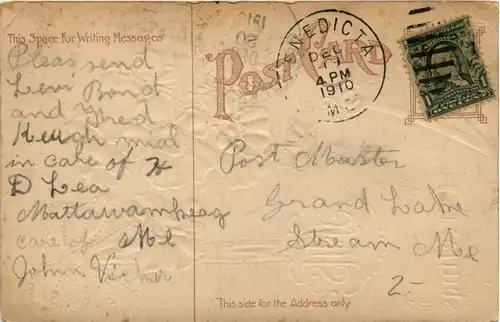 This Space For Writing Messages
Pleas send
Levi Bond
and Fred
Keugh mial
in care of H
D Lea
Mattawamkeag
care of Me
John
POST CARD
BENEDICTA
DEC
4 PM
1910
ME
Post Master
Grand Lake
Stream Me
2-
This side for the Address only